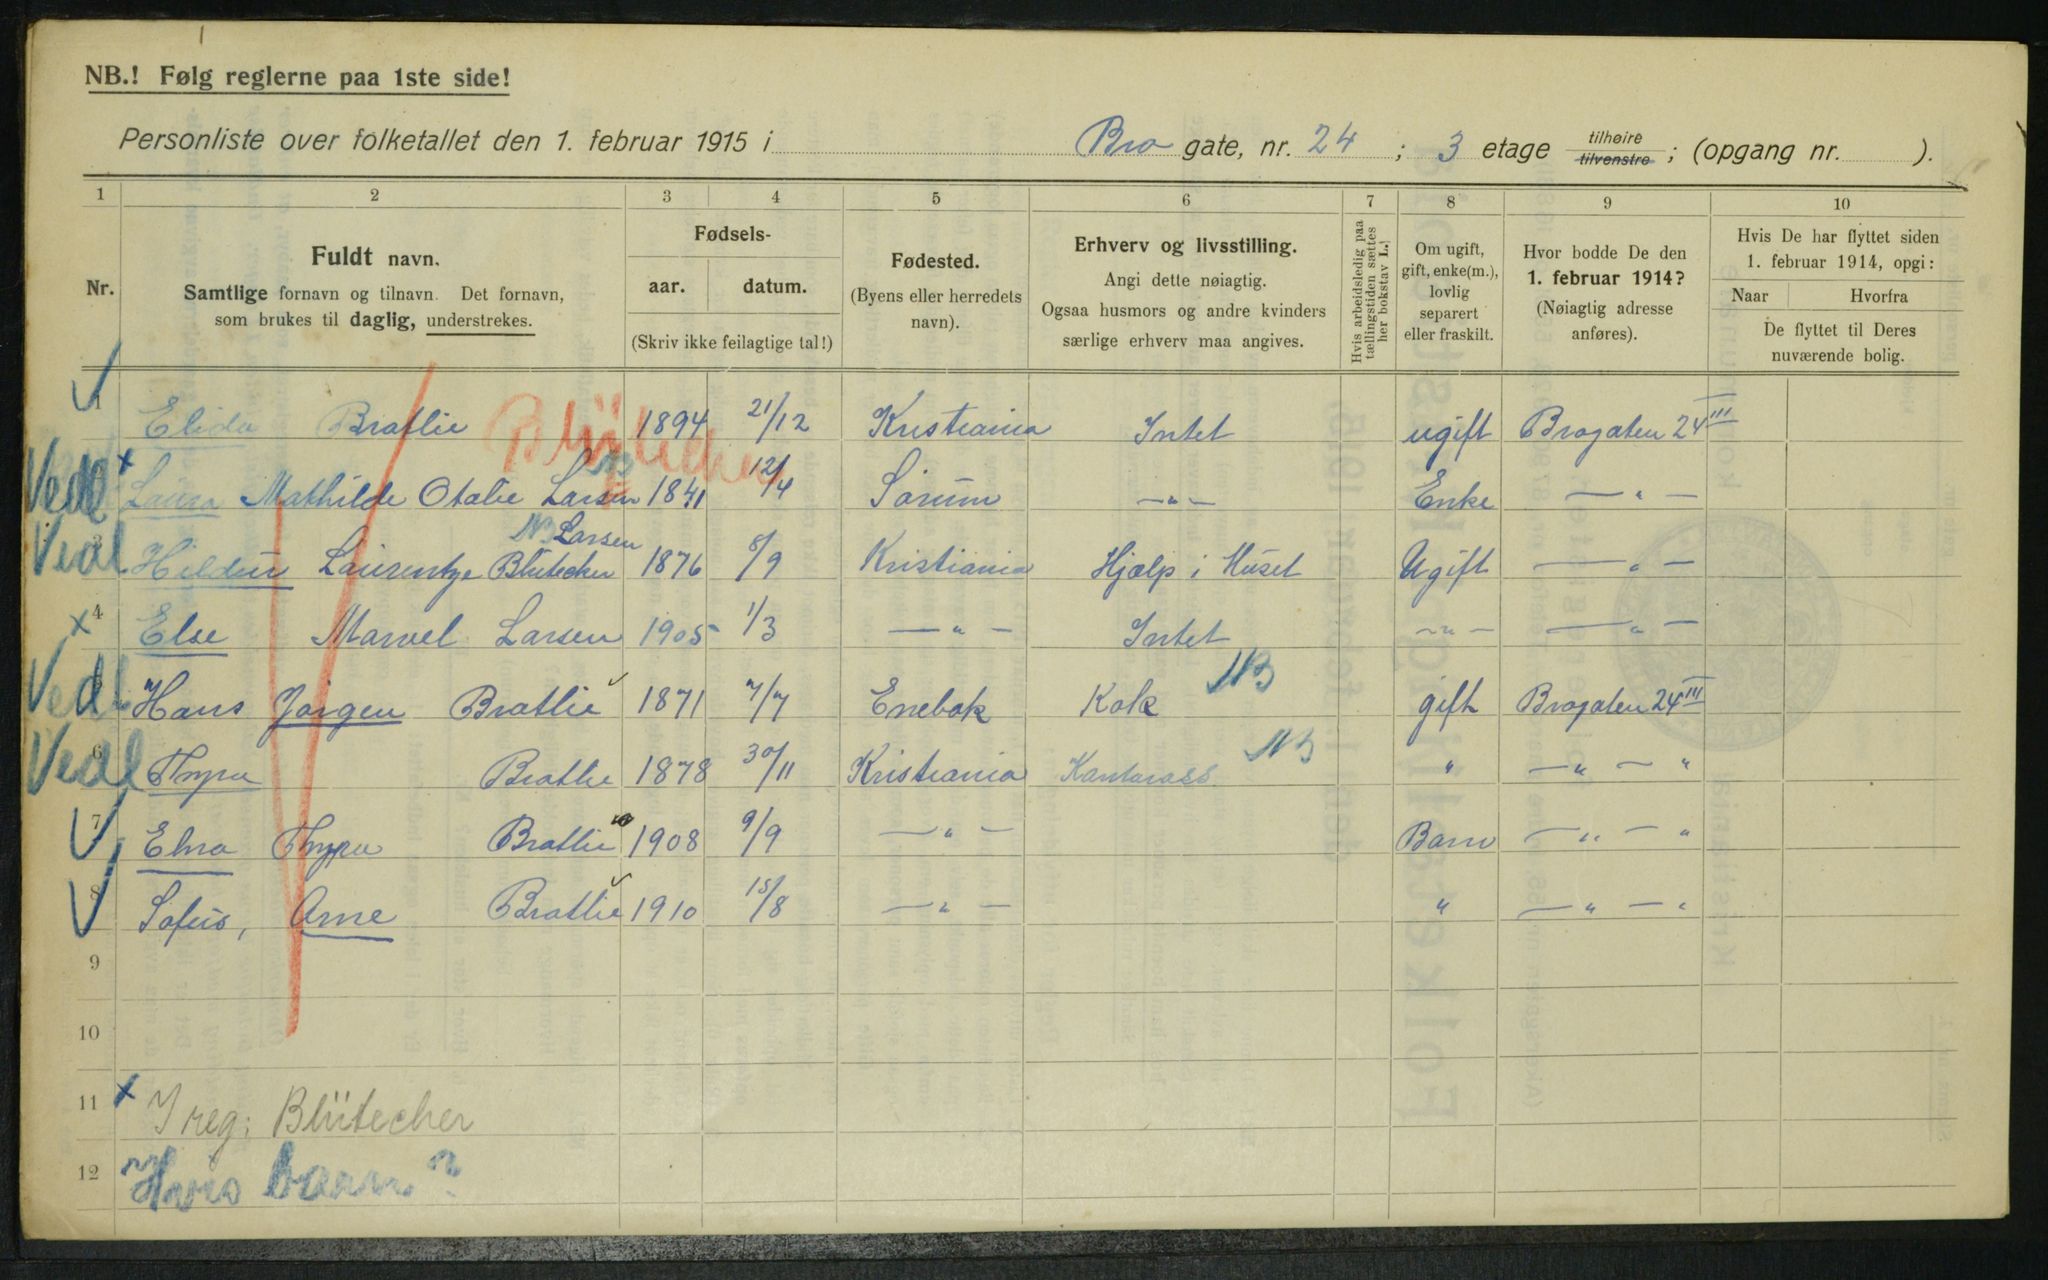 NB.! Følg reglerne paa 1ste side!
Personliste over folketallet den 1. februar 1915 i Bro gate, nr. 24 ; 3 etage tilhøire tilvenstre ; (opgang nr. ).
1 2 3 4 5 6 7 8 9 10
Nr.
Fuldt navn.
Samtlige fornavn og tilnavn. Det fornavn,
som brukes til daglig, understrekes.
Fødsels-
aar. datum.
(Skriv ikke feilagtige tal!)
Fødested.
(Byens eller herredets
navn).
Erhverv og livsstilling.
Angi dette nøiagtig.
Ogsaa husmors og andre kvinders
særlige erhverv maa angives.
Hvis arbeidsledig paa
tællingstiden sættes
her bokstav L.!
Om ugift,
gift, enke(m.),
lovlig
separert
eller fraskilt.
Hvor bodde De den
1. februar 1914?
(Nøiagtig adresse
anføres).
Hvis De har flyttet siden
1. februar 1914, opgi:
Naar Hvorfra
De flyttet til Deres
nuværende bolig.
1 Elida Bratlie 1894 21/12 Kristiania Intet ugift Brogaten 24 III
Blütecher
Vedl x Laura Mathilde Otalie Larsen 1841 12/4 Sørum —"— Enke —"—
NB Larsen
Vedl 3 Hildur Laurentze Blütecker 1876 8/9 Kristiania Hjælp i Huset Ugift —"—
x 4 Else Marvel Larsen 1905 1/3 —"— Intet —"— —"—
Vedl 5 Hans Jørgen Bratlie 1871 7/7 Enebak Kok NB gift Brogaten 24 III
Vedl 6 Thyra Bratlie 1878 30/11 Kristiania NB " —"— "
7 Elna Thyra Bratlie 1908 9/9 —"— Barn —"— "
8 Sofus, Arne Bratlie 1910 15/8 —"— " —"— "
9
10
11 x I reg: Blütecher
12 Hvis barn?